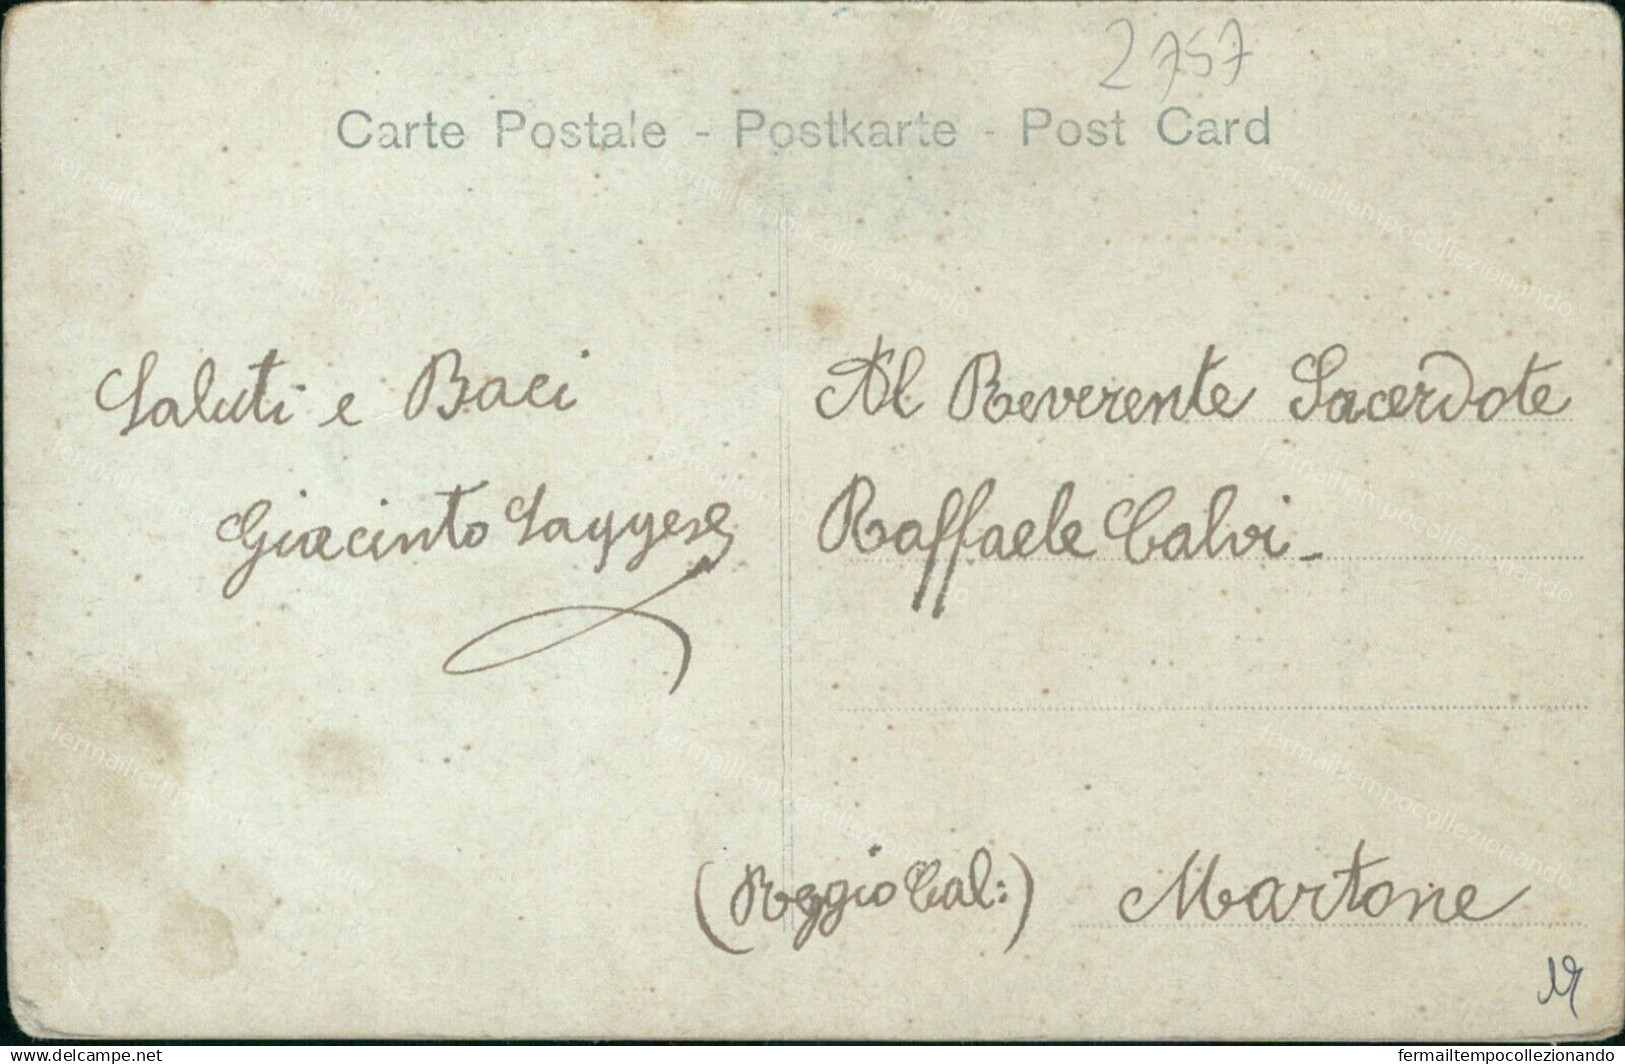 2757
Carte Postale - Postkarte - Post Card
Saluti e Baci
Giacinto Laggese
Al Reverente Sacerdote
Raffaele Calvi -
(Reggio Cal:) Martone
www.delcampe.net
fermailtempocollezionando